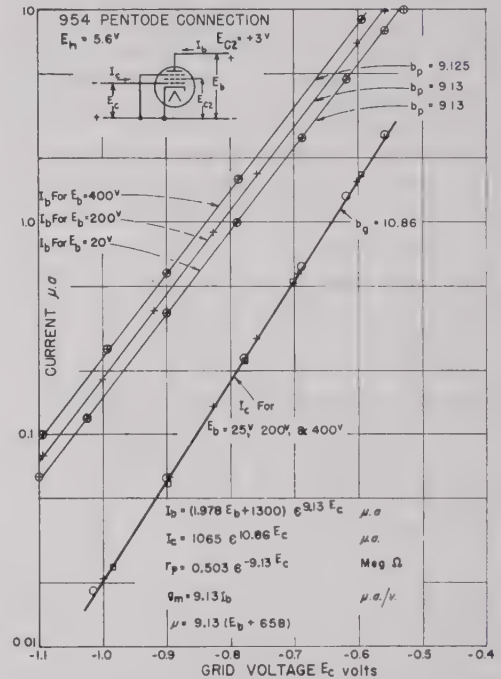 954 PENTODE CONNECTION
E_h = 5.6^v
E_C2 = +3^v
I_b
I_c
E_c
E_C2
E_b
+
+
-
+
10
1.0
0.1
0.01
CURRENT μ.a
b_p = 9.125
b_p = 9.13
b_p = 9.13
I_b For E_b = 400^v
I_b For E_b = 200^v
I_b For E_b = 20^v
b_g = 10.86
I_c For
E_b = 25^v, 200^v, & 400^v
I_b = (1.978 E_b + 1300) ϵ^9.13 E_c μ.a
I_c = 1065 ϵ^10.86 E_c μ.a.
r_p = 0.503 ϵ^-9.13 E_c Meg Ω
g_m = 9.13 I_b μ.a./v.
μ = 9.13 (E_b + 658)
-1.1 -1.0 -0.9 -0.8 -0.7 -0.6 -0.5 -0.4
GRID VOLTAGE E_c volts